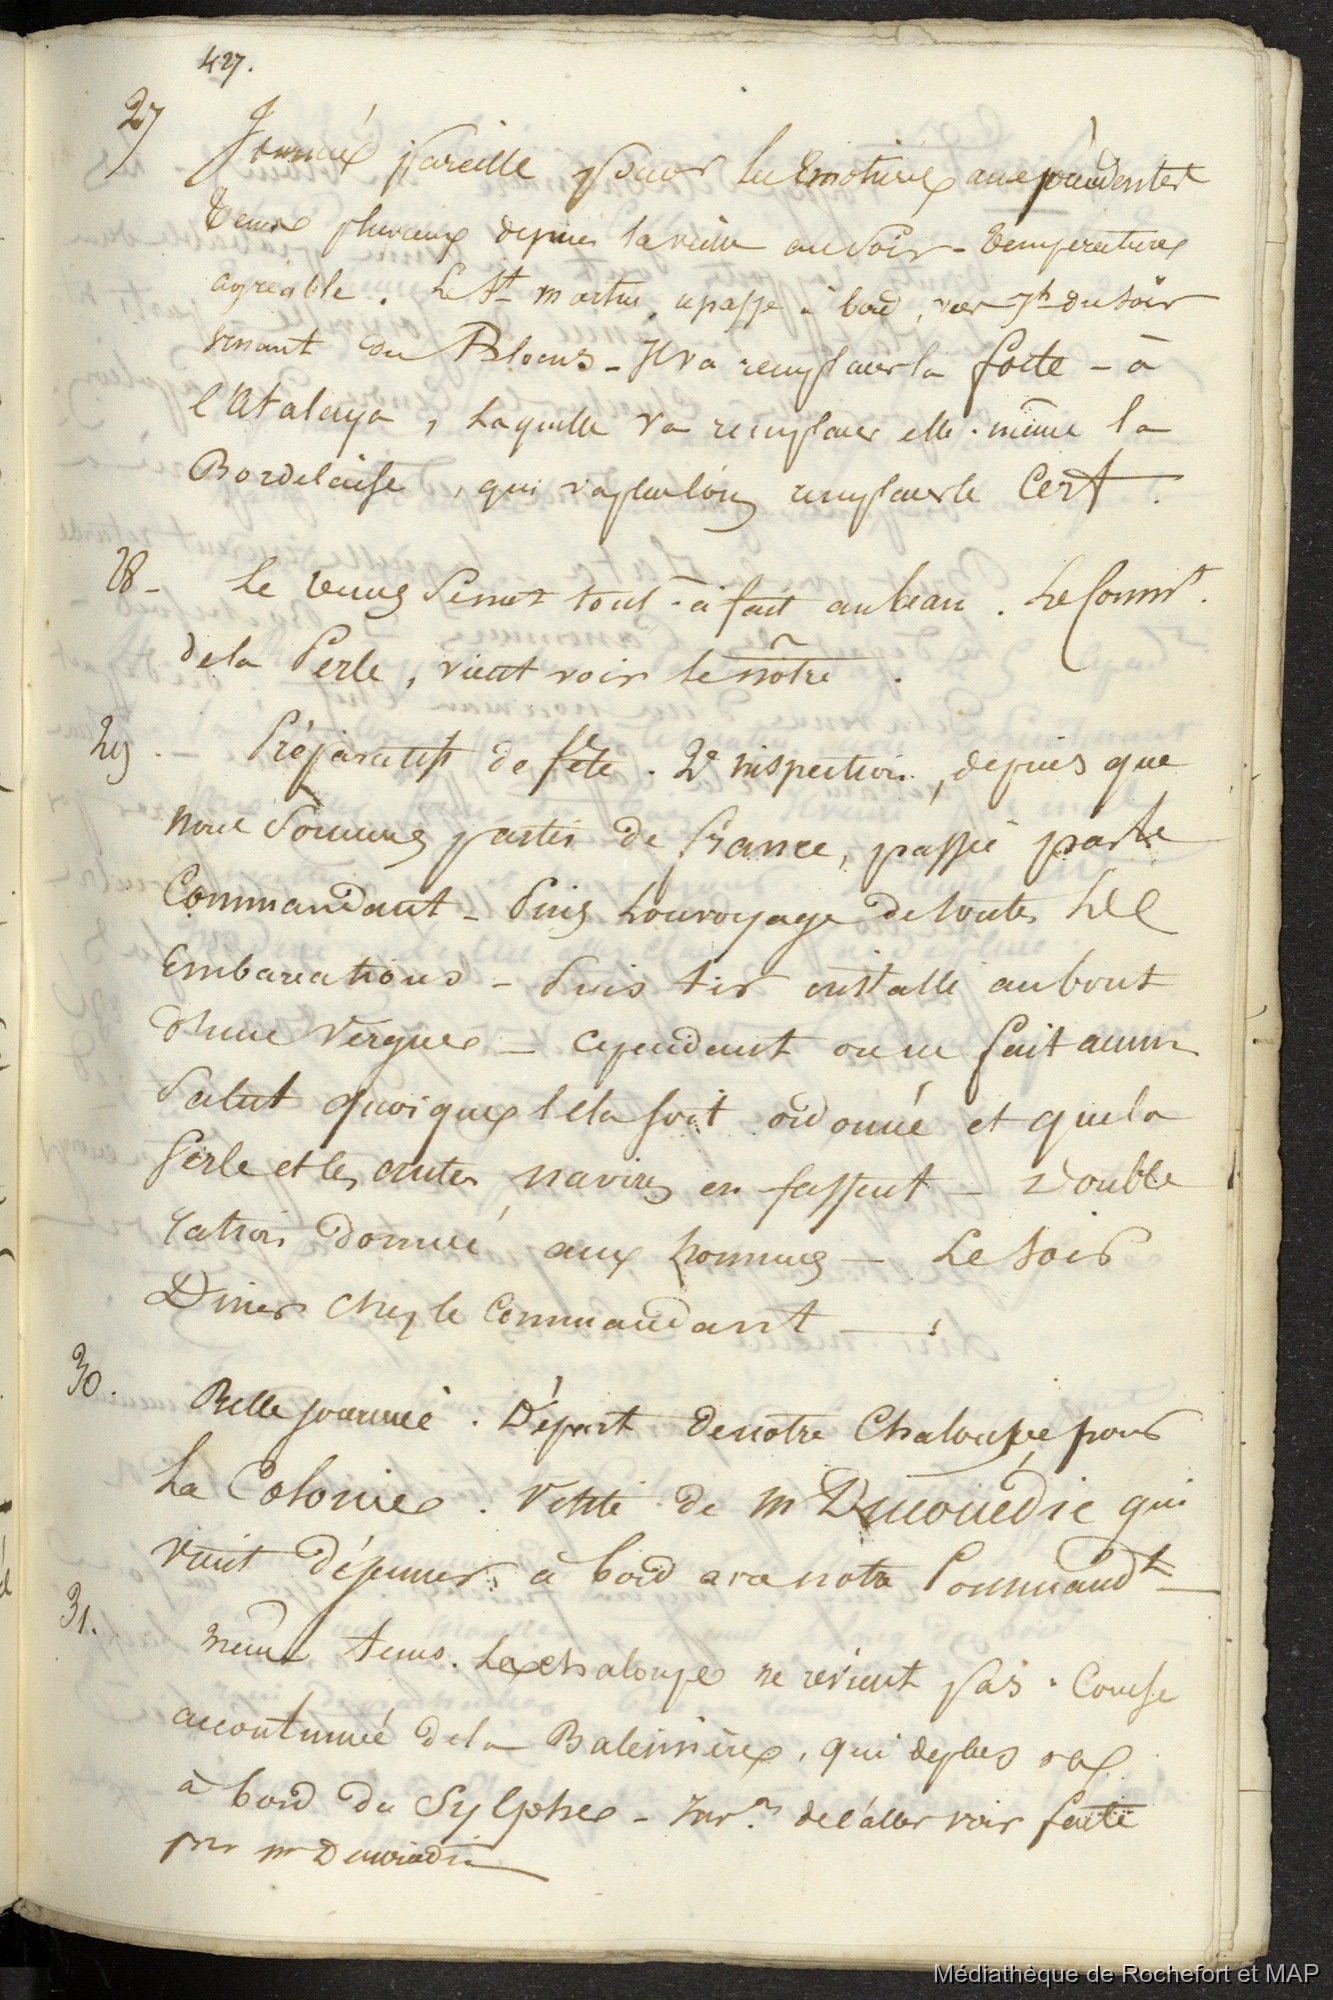 427.
27 Journée pareille pour les Emotions aux précédentes
Tems pluvieux depuis la veille au Soir - température
agréable. Le St martin, a passé à bord, vers 7h du soir
venant du Blocus - Il va remplacer la forte - à
l'Atalaya, Laquelle va remplacer elle-même la
Bordelaise, qui va plus loin remplacer le Cerf.
28 - Le tems Se met tout-à-fait au beau. Le Commt.
de la Perle, vient voir le nôtre.
29. Préparatifs de fête. 2e inspection, depuis que
nous Sommes partis de france, passée par le
Commandant - Puis Louvoyage de toutes Les
Embarcations - Puis tir installé au bout
d'une Vergue - Cependant on ne fait aucun
Salut quoique cela soit ordonné et que la
Perle et les autres navires en fassent - Double
ration donnée aux hommes - Le soir
Diner chez le Commandant -.
30. Belle journée. Départ de notre Chaloupe pour
La Colonie. Visite de m Ducouëdic qui
vient déjeuner à bord avec notre Commandt -
31. même tems. La chaloupe ne revient pas. Course
accoutumée de la Baleinière, qui de plus va
à bord du Sylphe - Invon. de l'aller voir faite
par mr Ducouëdic
Médiathèque de Rochefort et MAP